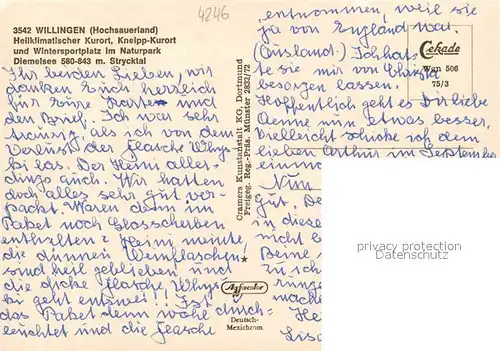 4246
3542 WILLINGEN (Hochsauerland)
Heilklimatischer Kurort, Kneipp-Kurort
und Wintersportplatz im Naturpark
Diemelsee 580-843 m. Strycktal
Ihr beiden Lieben, wir
danken Euch herzlich
für Eure Karten und
den Brief. Ich war sehr
traurig als ich von dem
Verlust der Flasche Whys
ky las. Der Heini aller-
dings auch. Wir hatten
doch alles sehr gut ver-
packt. Waren denn im
Paket noch Glasscherben
enthalten? Heini meinte,
die dünnen Weinflaschen
sind heil geblieben und
die dicke Flasche Whys
ky geht entzwei!! Ist
das Paket denn wohl durch-
leuchtet und die Flasche
entnommen, weil sie
ja von England war.
(Ausland.) Ich hat
te sie mir von
besorgen lassen.
Hoffentlich geht es Dir liebe
Aenne nun etwas besser.
Vielleicht schicke ich dem
lieben Arthur im September
einm
Nun
gut. D
in diese
nicht
Beine
zu sch
ringe
nackt
He
Lisa
Cramers Kunstanstalt KG, Dortmund
Freigeg. Reg.-Präs. Münster 2832/72
Cekade
Wgn 506
75/3
Agfacolor
Deutsch-
Mexichrom
privacy protection
Datenschutz